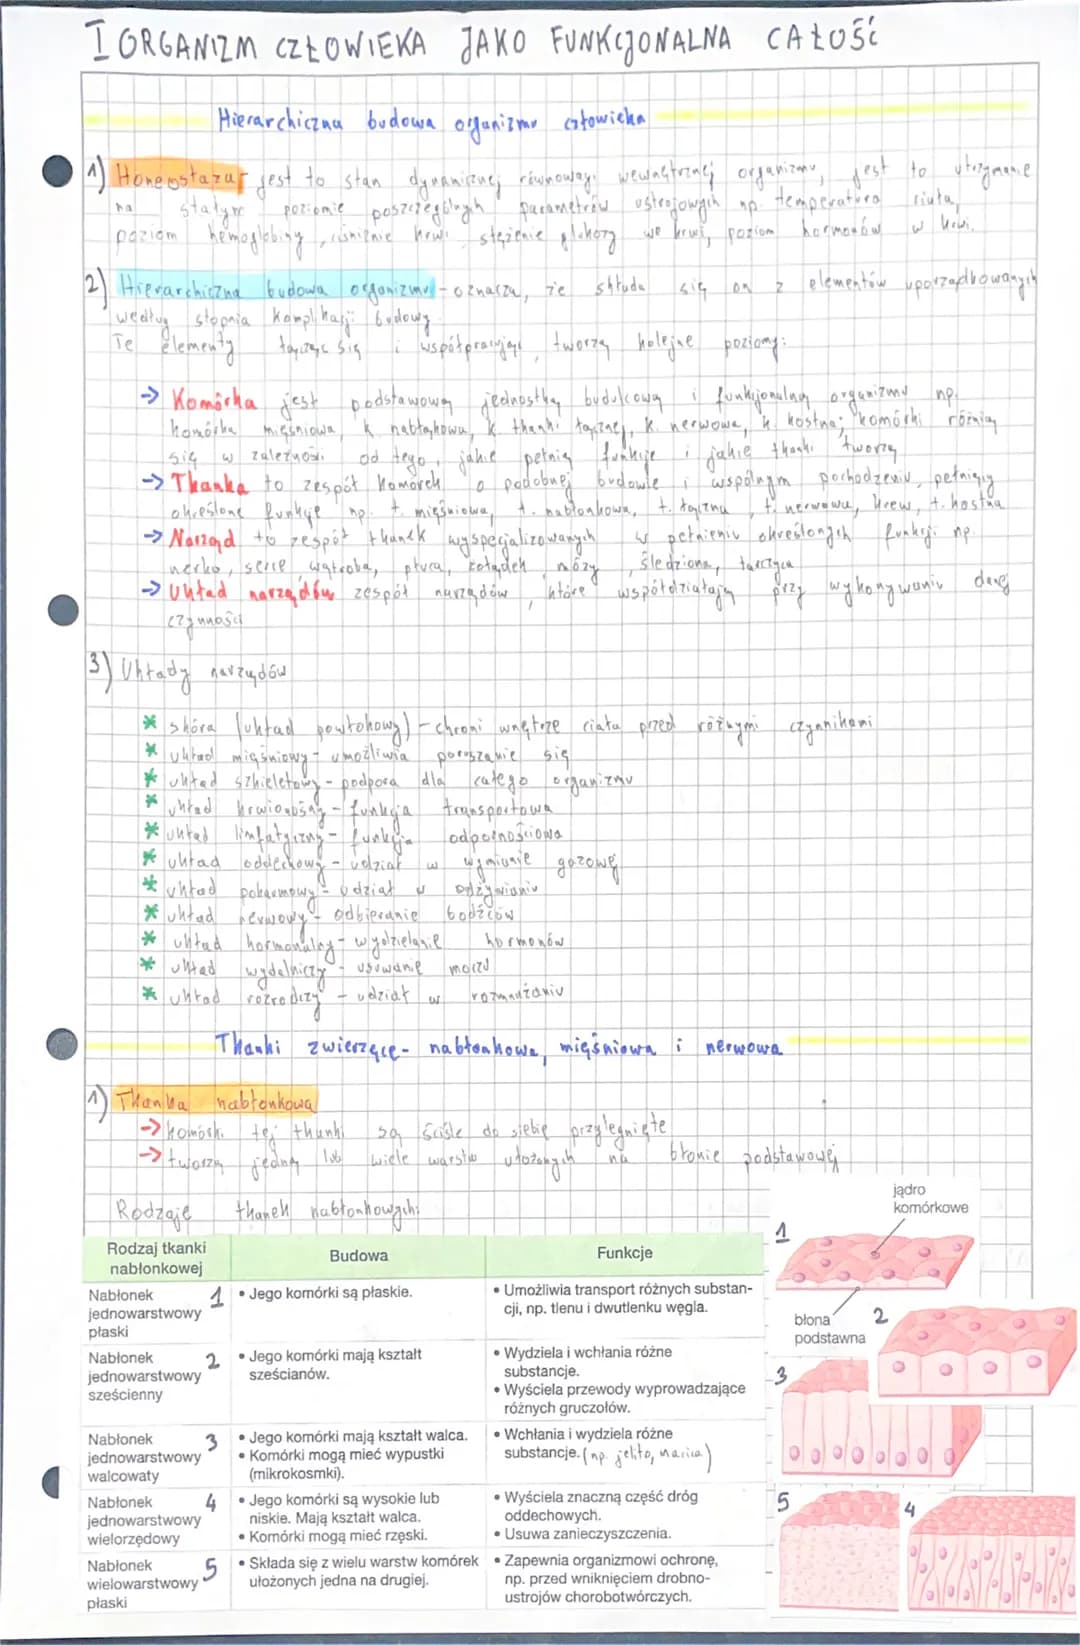 I ORGANIZM CZŁOWIEKA JAKO FUNKCJONALNA CAŁOŚĆ
Hierarchiczna budowa organizmu człowieka
1) Homeostaza jest to stan dynamicznej równowagi wewnętrznej organizmu, jest to utrzymanie
na stałym poziomie poszczególnych parametrów ustrojowych np. temperatura ciała,
poziom hemoglobiny, ciśnienie krwi, stężenie glukozy we krwi, poziom hormonów w krwi.
2) Hierarchiczna budowa organizmu - oznacza, że składa się on z elementów uporządkowanych
według stopnia komplikacji budowy
Te elementy łącząc się i współpracując, tworzą kolejne poziomy:
→ Komórka jest podstawową jednostką budulcową i funkcjonalną organizmu np.
komórka mięśniowa, k. nabłonkowa, k. tkanki łącznej, k. nerwowa, k. kostna; komórki różnią
się w zależności od tego, jakie pełnią funkcje i jakie tkanki tworzą
→ Tkanka to zespół komórek o podobnej budowie i wspólnym pochodzeniu, pełniący
określone funkcje np. t. mięśniowa, t. nabłonkowa, t. łączna, t. nerwowa, krew, t. kostna
→ Narząd to zespół tkanek wyspecjalizowanych w pełnieniu określonych funkcji np.
nerka, serce, wątroba, płuca, żołądek, mózg, śledziona, tarczyca
→ Układ narządów zespół narządów, które współdziałają przy wykonywaniu danej
czynności
3) Układy narządów
* skóra (układ powłokowy) - chroni wnętrze ciała przed różnymi czynnikami
* układ mięśniowy - umożliwia poruszanie się
* układ szkieletowy - podpora dla całego organizmu
* układ krwionośny - funkcja transportowa
* układ limfatyczny - funkcja odpornościowa
* układ oddechowy - udział w wymianie gazowej
* układ pokarmowy - udział w odżywianiu
* układ nerwowy - odbieranie bodźców
* układ hormonalny - wydzielanie hormonów
* układ wydalniczy - usuwanie moczu
* układ rozrodczy - udział w rozmnażaniu
Tkanki zwierzęce - nabłonkowa, mięśniowa i nerwowa
1) Tkanka nabłonkowa
→ komórki tej tkanki są ściśle do siebie przylegnięte
→ tworzą jedną lub wiele warstw ułożonych na błonie podstawowej
Rodzaje tkanek nabłonkowych:
Rodzaj tkanki nabłonkowej
Budowa
Funkcje
Nabłonek jednowarstwowy płaski 1
• Jego komórki są płaskie.
• Umożliwia transport różnych substan-
cji, np. tlenu i dwutlenku węgla.
Nabłonek jednowarstwowy sześcienny 2
• Jego komórki mają kształt
sześcianów.
• Wydziela i wchłania różne
substancje.
• Wyściela przewody wyprowadzające
różnych gruczołów.
Nabłonek jednowarstwowy walcowaty 3
• Jego komórki mają kształt walca.
• Komórki mogą mieć wypustki
(mikrokosmki).
• Wchłania i wydziela różne
substancje. (np. jelito, macica)
Nabłonek jednowarstwowy wielorzędowy 4
• Jego komórki są wysokie lub
niskie. Mają kształt walca.
• Komórki mogą mieć rzęski.
• Wyściela znaczną część dróg
oddechowych.
• Usuwa zanieczyszczenia.
Nabłonek wielowarstwowy płaski 5
• Składa się z wielu warstw komórek
ułożonych jedna na drugiej.
• Zapewnia organizmowi ochronę,
np. przed wniknięciem drobno-
ustrojów chorobotwórczych.
jądro
komórkowe
1
błona
podstawna
2
3
5
4